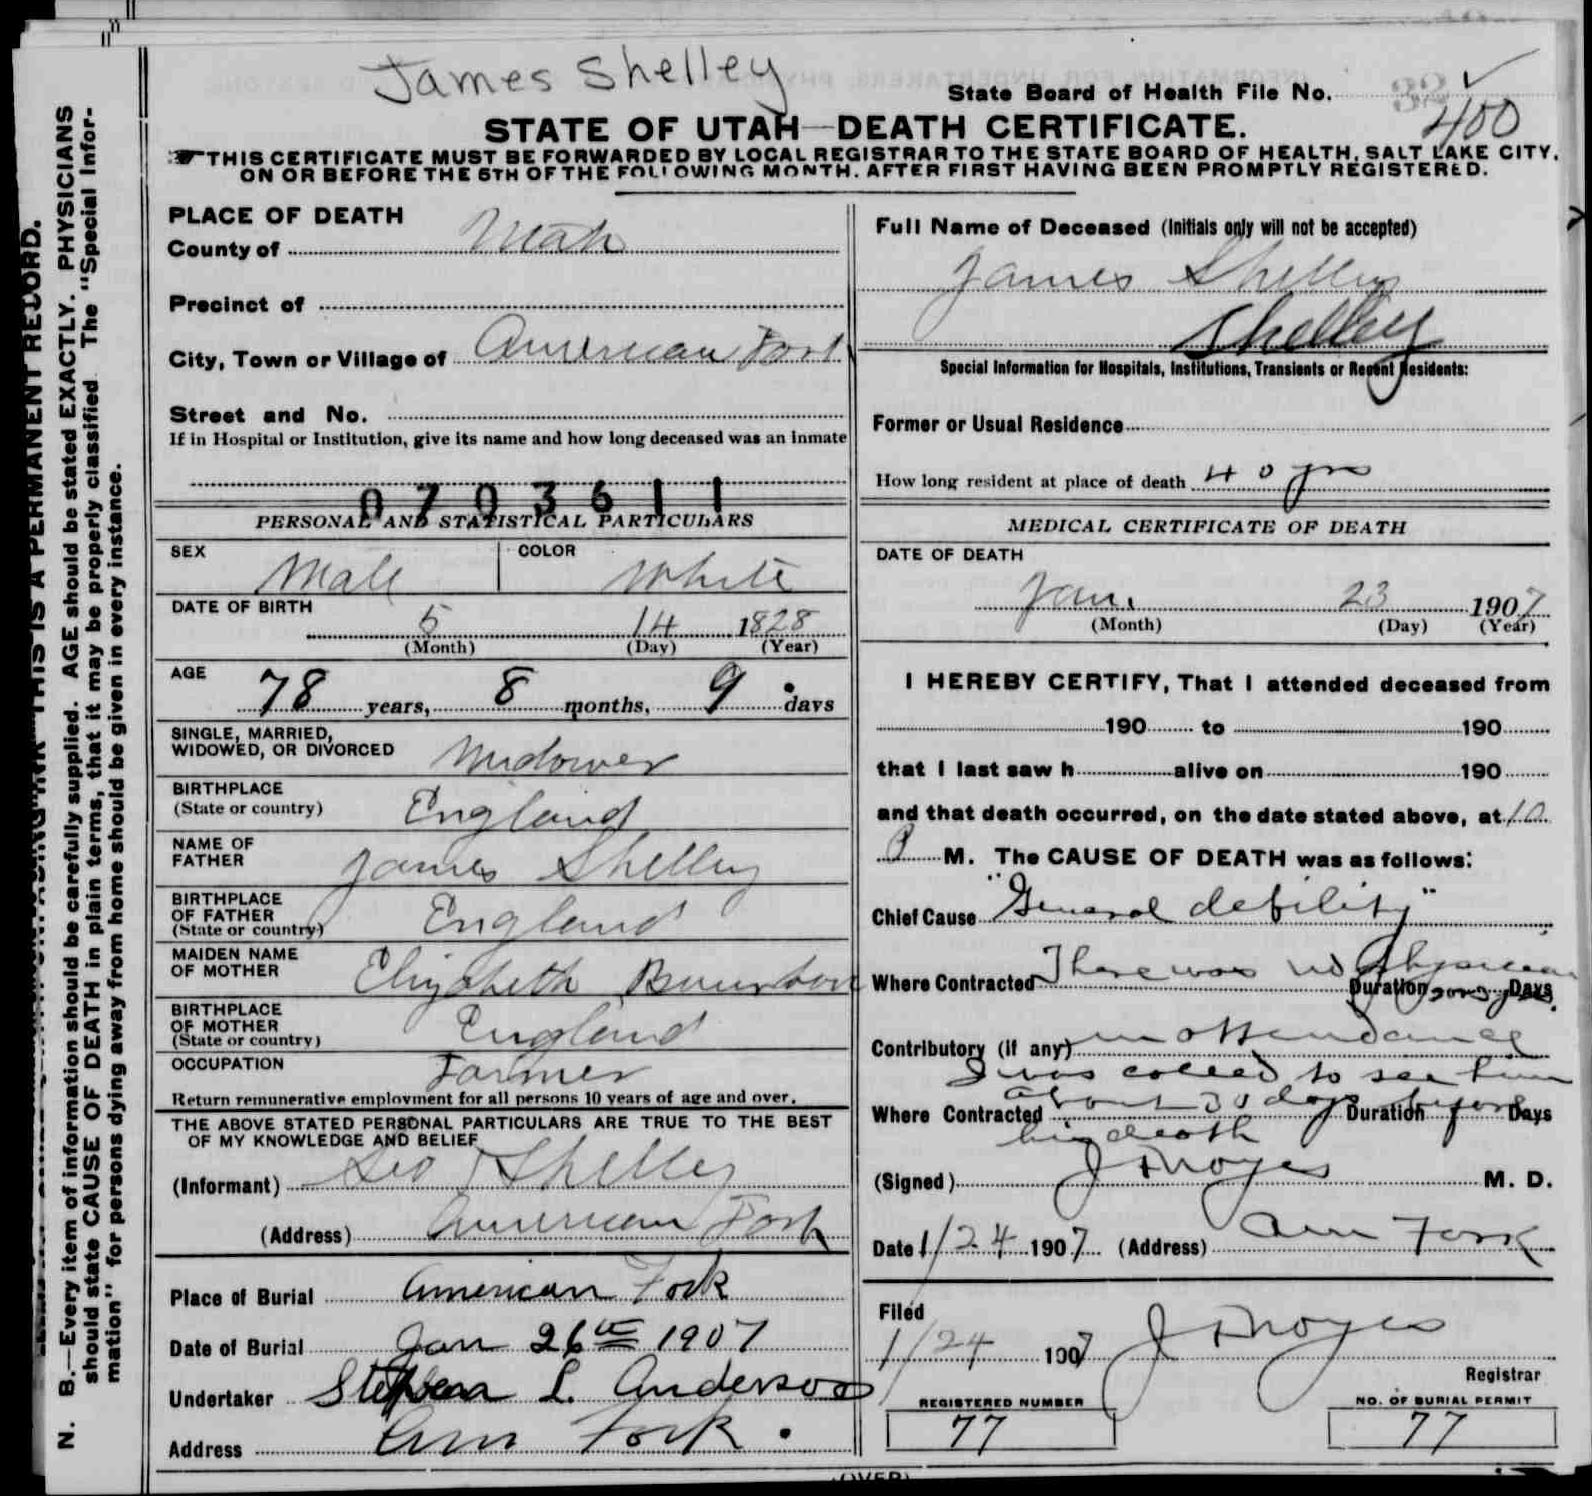 James Shelley
State Board of Health File No.
400
STATE OF UTAH—DEATH CERTIFICATE.
THIS CERTIFICATE MUST BE FORWARDED BY LOCAL REGISTRAR TO THE STATE BOARD OF HEALTH, SALT LAKE CITY,
ON OR BEFORE THE 5TH OF THE FOLLOWING MONTH, AFTER FIRST HAVING BEEN PROMPTLY REGISTERED.
N. B.—Every item of information should be carefully supplied. AGE should be stated EXACTLY. PHYSICIANS
should state CAUSE OF DEATH in plain terms, that it may be properly classified The "Special Infor-
mation" for persons dying away from home should be given in every instance.
THIS IS A PERMANENT RECORD.
PLACE OF DEATH
County of Utah
Precinct of
City, Town or Village of American Fork
Street and No.
If in Hospital or Institution, give its name and how long deceased was an inmate
0703611
PERSONAL AND STATISTICAL PARTICULARS
SEX Male COLOR White
DATE OF BIRTH
5 14 1828
(Month) (Day) (Year)
AGE 78 years, 8 months, 9 days
SINGLE, MARRIED,
WIDOWED, OR DIVORCED Widower
BIRTHPLACE
(State or country) England
NAME OF
FATHER James Shelley
BIRTHPLACE
OF FATHER England
(State or country)
MAIDEN NAME
OF MOTHER Elizabeth
BIRTHPLACE
OF MOTHER England
(State or country)
OCCUPATION Farmer
Return remunerative employment for all persons 10 years of age and over.
THE ABOVE STATED PERSONAL PARTICULARS ARE TRUE TO THE BEST
OF MY KNOWLEDGE AND BELIEF
(Informant) Geo Shelley
(Address) American Fork
Place of Burial American Fork
Date of Burial Jan 26th 1907
Undertaker Stephen L. Anderson
Address Am Fork.
Full Name of Deceased (Initials only will not be accepted)
James Shelley
Shelley
Special Information for Hospitals, Institutions, Transients or Recent Residents:
Former or Usual Residence
How long resident at place of death 40 yrs
MEDICAL CERTIFICATE OF DEATH
DATE OF DEATH
Jan. 23 1907
(Month) (Day) (Year)
I HEREBY CERTIFY, That I attended deceased from
190 to 190
that I last saw h alive on 190
and that death occurred, on the date stated above, at 10
P M. The CAUSE OF DEATH was as follows:
Chief Cause "General debility"
Where Contracted There was no Physician
Duration Days
Contributory (if any) in attendance
I was called to see him
Where Contracted about 30 days before Duration Days
his death
(Signed) J F Noyes M. D.
Date 1/24 1907 (Address) Am Fork
Filed
1/24 1907 J F Noyes
Registrar
REGISTERED NUMBER NO. OF BURIAL PERMIT
77 77
(OVER)